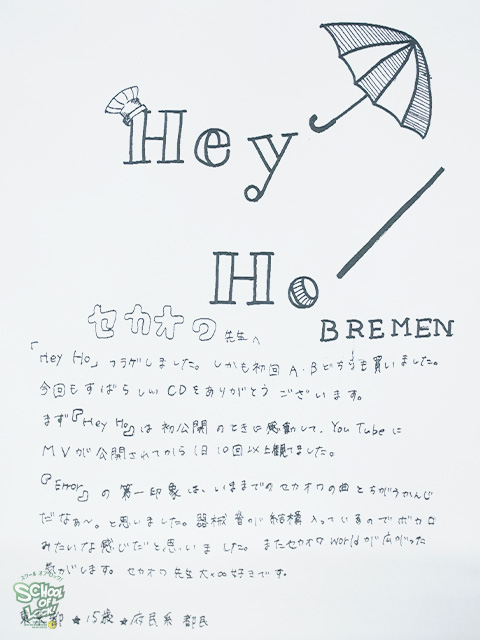 Hey
Ho
BREMEN
セカオワ 先生へ
「Hey Ho」フラゲしました。しかも初回 A・Bどちらも買いました。
今回もすばらしいCDをありがとう ございます。
まず『Hey Ho』は 初公開 のときに感動して、YouTubeに
MVが公開されてから1日10回以上観てました。
『Error』の第一印象は、いままでのセカオワの曲とちがうかんじ
だなぁ〜。と思いました。器械音が結構入っているのでボカロ
みたいな感じだと思いました。またセカオワWorldが広がった
気がします。セカオワ先生大×∞好きです。
スクール オブ ロック!
SCHOOL OF LOCK!
東京都 ★ 15歳 ★ 府民系 都民